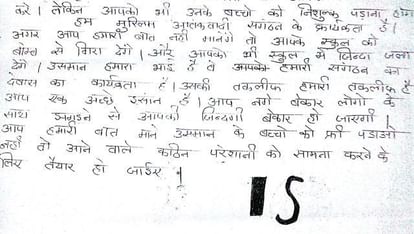 करे। लेकिन आपको भी उनके बच्चो को निशुल्क पडाना होगा
हम मुस्लिम आतंकवादी संगठन के कार्यकर्ता है।
अगर आप हमारी बात नही मानेगे तो आपके स्कूल को
बाम्ब से गिरा देगे। और आपको भी स्कूल मे जिन्दा जला
देगे। उसमान हमारा भाई है वे आपके हमारी संगठन का
देवास का कार्यकर्ता है। उसकी तकलीफ हमारी तकलीफ है
आप एक अच्छे इंसान है। आप बेकार लोगो के
साथ से आपकी जिन्दगी बेकार हो जाएगी।
आप हमारी बात माने उसमान के बच्चो को फ्री पडाओ
नही तो आने वाले कठिन परेशानी को सामना करने के
लिए तैयार हो जाईए।
IS